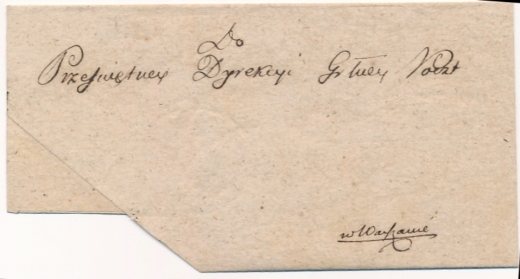 Do
Przeświętney Dyrekcyi Głłney Poczt
w Warszawie